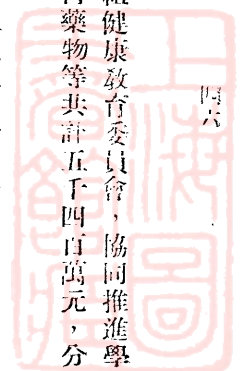 四六
組健康教育委員會，協同推進學
藥物等共計五千四百萬元，分
上海圖